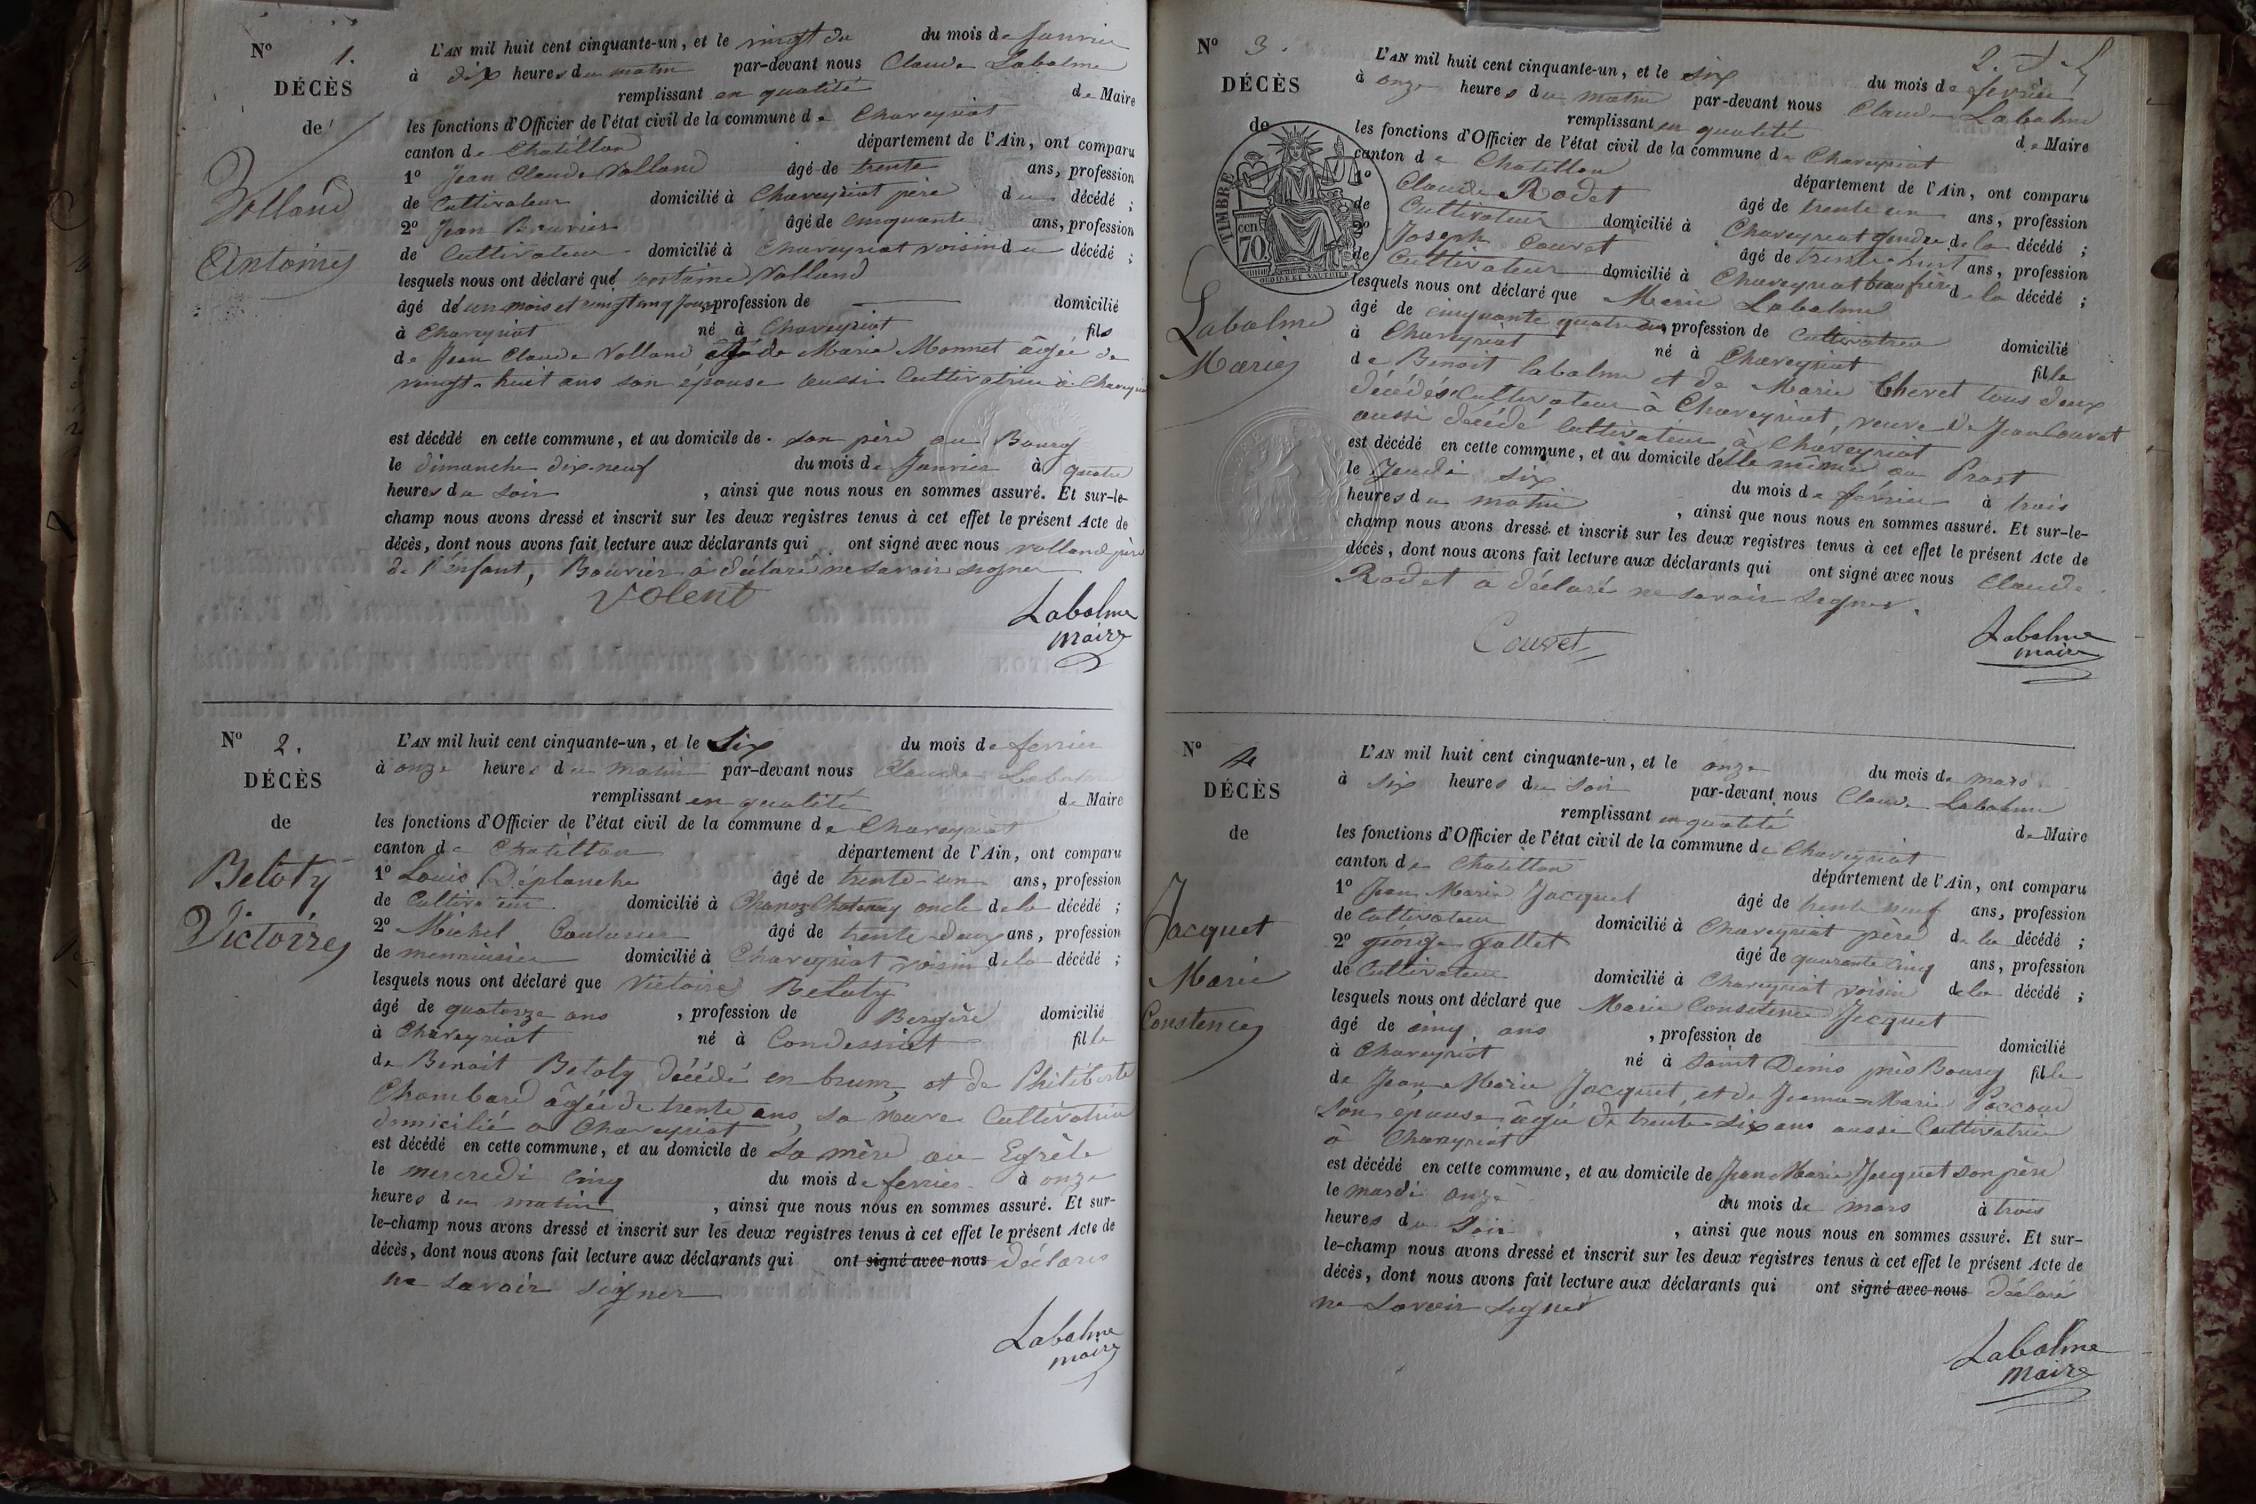 N° 1.
DÉCÈS
de
Volland
Antoine
L'AN mil huit cent cinquante-un, et le vingt du du mois de Janvier
à dix heures du matin par-devant nous Claude Labalme
remplissant en qualité de Maire
les fonctions d'Officier de l'état civil de la commune de Chaveyriat
canton de Chatillon département de l'Ain, ont comparu
1° Jean Claude Volland âgé de trente ans, profession
de Cultivateur domicilié à Chaveyriat père du décédé ;
2° Jean Bouvier âgé de cinquante ans, profession
de Cultivateur domicilié à Chaveyriat voisin du décédé ;
lesquels nous ont déclaré que Volland
âgé de un mois et vingt cinq jours profession de domicilié
à Chaveyriat né à Chaveyriat fils
de Jean Claude Volland de Marie Monnet âgée de
vingt-huit ans son épouse aussi Cultivatrice à
est décédé en cette commune, et au domicile de son père au Bourg
le dimanche dix-neuf du mois de Janvier à quatre
heures du soir , ainsi que nous nous en sommes assuré. Et sur-le-
champ nous avons dressé et inscrit sur les deux registres tenus à cet effet le présent Acte de
décès, dont nous avons fait lecture aux déclarants qui ont signé avec nous volland père
de l'enfant, Bouvier a déclaré ne savoir signer
volent
Labalme
maire
N° 2.
DÉCÈS
de
Beloty
Victoire
L'AN mil huit cent cinquante-un, et le Six du mois de fevrier
à onze heures du matin par-devant nous Claude Labalme
remplissant en qualité de Maire
les fonctions d'Officier de l'état civil de la commune de Chaveyriat
canton de Chatillon département de l'Ain, ont comparu
1° Louis Déplanche âgé de trente-un ans, profession
de Cultivateur domicilié à Chanoz Chatenay oncle de la décédé ;
2° Michel Couturier âgé de trente-deux ans, profession
de menuisier domicilié à Chaveyriat voisin de la décédé ;
lesquels nous ont déclaré que Victoire Beloty
âgé de quatorze ans , profession de Bergère domicilié
à Chaveyriat né à Condessiat fille
de Benoit Beloty décédé en brum, et de Philiberte
Chambard âgée de trente ans, sa veuve Cultivatrice
domicilié a Chaveyriat
est décédé en cette commune, et au domicile de sa mère au Egrèle
le mercredi cinq du mois de fevrier à onze
heures du matin , ainsi que nous nous en sommes assuré. Et sur-
le-champ nous avons dressé et inscrit sur les deux registres tenus à cet effet le présent Acte de
décès, dont nous avons fait lecture aux déclarants qui ont signé avec nous déclaré
ne savoir signer
Labalme
maire
N° 3.
DÉCÈS
de
TIMBRE
cen 70.
Labalme
Marie
L'AN mil huit cent cinquante-un, et le six du mois de fevrier
à onze heures du matin par-devant nous Claude Labalme
remplissant en qualité de Maire
les fonctions d'Officier de l'état civil de la commune de Chaveyriat
canton de Chatillon département de l'Ain, ont comparu
1° Claude Rodet âgé de trente un ans, profession
de Cultivateur domicilié à Chaveyriat gendre de la décédé ;
2° Joseph Couvat âgé de trente-huit ans, profession
de Cultivateur domicilié à Chaveyriat beau frère de la décédé ;
lesquels nous ont déclaré que Marie Labalme
âgé de cinquante quatre ans, profession de Cultivatrice domicilié
à Chaveyriat né à Chaveyriat fille
de Benoit labalme et de Marie Chevet tous deux
décédés Cultivateur à Chaveyriat, veuve de Jean Couvat
aussi décédé Cultivateur à Chaveyriat
est décédé en cette commune, et au domicile d'elle même au Prost
le Jeudi six du mois de février à trois
heures du matin , ainsi que nous nous en sommes assuré. Et sur-le-
champ nous avons dressé et inscrit sur les deux registres tenus à cet effet le présent Acte de
décès, dont nous avons fait lecture aux déclarants qui ont signé avec nous Claude
Rodet a déclaré ne savoir signer.
Couvet
Labalme
maire
N° 4
DÉCÈS
de
Jacquet
Marie
Constence
L'AN mil huit cent cinquante-un, et le onze du mois de mars
à six heures du soir par-devant nous Claude Labalme
remplissant en qualité de Maire
les fonctions d'Officier de l'état civil de la commune de Chaveyriat
canton de Chatillon département de l'Ain, ont comparu
1° Jean Marie Jacquet âgé de trente neuf ans, profession
de Cultivateur domicilié à Chaveyriat père de la décédé ;
2° géorge gallet âgé de quarante cinq ans, profession
de Cultivateur domicilié à Chaveyriat voisin de la décédé ;
lesquels nous ont déclaré que Marie Constence Jacquet
âgé de cinq ans , profession de domicilié
à Chaveyriat né à Saint Denis près Bourg fille
de Jean-Marie Jacquet, et de Jeanne-Marie Poccoud
son épouse âgée de trente-six ans aussi Cultivatrice
à Chaveyriat
est décédé en cette commune, et au domicile de Jean Marie Jacquet son père
le mardi onze du mois de mars à trois
heures du soir , ainsi que nous nous en sommes assuré. Et sur-
le-champ nous avons dressé et inscrit sur les deux registres tenus à cet effet le présent Acte de
décès, dont nous avons fait lecture aux déclarants qui ont signé avec nous déclaré
ne savoir signer
Labalme
maire